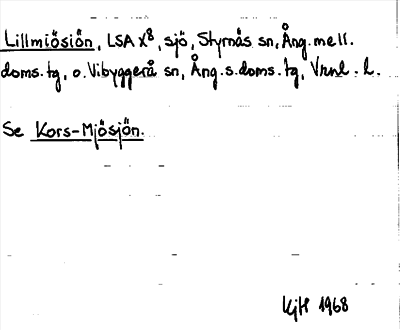 Lillmiösiön, LSA X8, sjö, Styrnäs sn, Ång. mell.
doms. tg, o. Vibyggerå sn, Ång. s. doms. tg, Vrnl. l.
Se Kors-Mjösjön.
KjH 1968